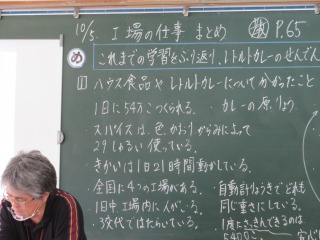 10/5 工場の仕事 まとめ 教 P.65
め これまでの学習をふり返り、レトルトカレーのせんでん
1 ハウス食品やレトルトカレーについてわかったこと
1日に54万こつくられる。
カレーの原りょう
スパイスは、色、かおり、からみによって
29しゅるい使っている。
きかいは1日21時間動かしている。
全国に4つの工場がある。
・自動計りょうきでどれも
1日中工場内に人がいる。
同じ重さにしている。
3交代ではたらいている。
・1度にさっきんできるのは
5400こ